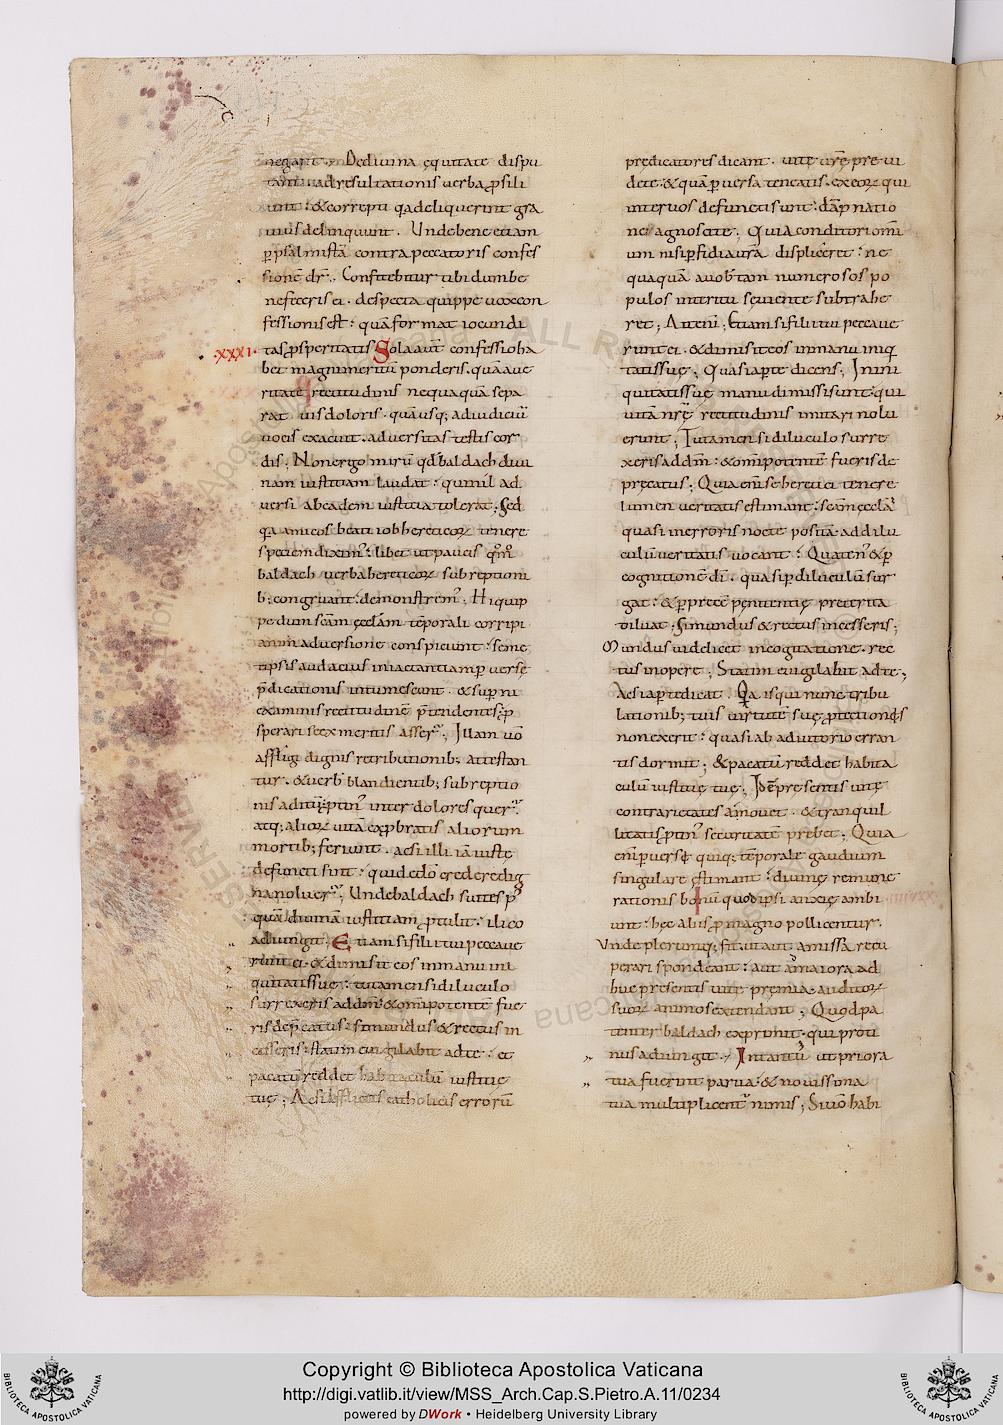 negant. De divina ęquitate dispu
tant. ad resultationis verba ꝓsili
unt. & correpti qa deliquerint gra
vius delinquunt. Unde bene etiam
ꝑ psalmistā contra peccatoris confes
sionē dr̄. Confitebitur tibi dum be
nefeceris ei. despecta quippe vox con
fessionis est: quā format iocundi
.xxxi. tas ꝓsperitatis. Sola aut̄ confessio ha
bet magni meritū ponderis. quā a ve
ritate rectitudinis nequaquā sepa
rat vis doloris. quāusq; ad iudiciū
vocis exacuit. adversitas testis cor
dis; Non ergo mirū qd̄ baldach divi
nam iustitiam laudat: qui nil ad
versi ab eadem iustitia tolerat; Sed
qa amicos beati iob hereticoꝝ tenere
speciem diximꝰ: libet ut paucis qm̄o
baldach verba hereticoꝝ subreptioni
b; congruant: demonstremꝰ; Hi quip
pe dum sc̄am ęccl̄am tēporali corripi
animadversione conspiciunt: semet
ipsis audacius in iactantiam perversę
p̄dicationis intumescunt. & superni
examinis rectitudinē p̄tendentes: ꝓ
sperari se ex meritis asserūt; Illam vō
affligi dignis retributionib; attestan
tur. & verb blandientib; subreptio
nis aditū ꝓtinꝰ inter dolores querūt
atq; alioꝝ vitā exꝓbratis aliorum
mortib; feriunt. ac si illi iā iuste
defuncti sint: qui de dō credere dign̄
ha noluerūt; Unde baldach suites pꝰ
quā divinā iustitiam ꝓtulit: ilico
adiungit; Etiam si filii tui peccave
runt ei. & dimisit eos in manu ini
quitatis suę: tu tamen si diluculo
surrexeris ad dm̄: & omīpotentē fue
ris dep̄catus: si mundus & rectus in
cesseris: statim evigilabit ad te: et
pacatū reddet habitaculū iustitię
tuę; Ac si afflictis catholicis errorū
predicatores dicant. vitę vr̄ę pre vi
dete. & quā ꝑversa teneatis. ex eoꝝ qui
inter vos defuncti sunt: dāpnatio
ne agnoscite; Quia conditori omi
um nisi perfidia vr̄a displiceret: ne
quaquā a vobis tam numerosos po
pulos interitu sęviente subtrahe
ret; Aut eni; Etiam si filii tui peccave
runt ei. & dimisit eos in manu iniq
tatis suę; Quasi aperte dicens; In ini
quitatis suę manu dimissi sunt: qui
vitā nr̄ę rectitudinis imitari nolu
erunt; Tu tamen si diluculo surre
xeris ad dm̄: & omipotentē fueris de
precatus; Quia enī se heretici tenere
lumen veritatis estimant: sc̄am ęccl̄a
quasi in erroris nocte positā. ad dilu
culū veritatis vocant: Quatenꝰ & ꝑ
cognitionē dī. quasi ꝑ diluculū sur
gat: & ꝑ precē penitentię preterita
diluat; Si mundus & rectus incesseris;
Mundus videlicet in cogitatione. rec
tus in opere; Statim evigilabit ad te;
Ac si aperte dicat. Qa is qui nunc tribu
lationib; tuis virtutē suę ꝓtectionis
non exerit: quasi ab adiutorio erran
tis dormit; & pacatū reddet habita
culū iustitię tuę; Idē presentis vitę
contrarietates amovet. & tranquil
litatis ꝓtinꝰ securitatē prebet; Quia
enī perversi quiq; tēporale gaudium
singulare estimant: divinę remune
rationis bonū quod ipsi anxię ambi
unt: hęc aliis pro magno pollicentur.
Unde plerumq; fit ut aut amissa recu
perari spondeant: aut maiora ad
huc presentis vitę premia auditoꝝ
suoꝝ animos extendant; Quod pa
tenter baldach exprimit. qui proti
nus adiungit; In tantū ut priora
tua fuerint parva: & novissima
tua multiplicentur nimis; Si vō habi
Copyright © Biblioteca Apostolica Vaticana
http://digi.vatlib.it/view/MSS_Arch.Cap.S.Pietro.A.11/0234
powered by DWork • Heidelberg University Library
BIBLIOTECA APOSTOLICA VATICANA
BIBLIOTECA APOSTOLICA VATICANA